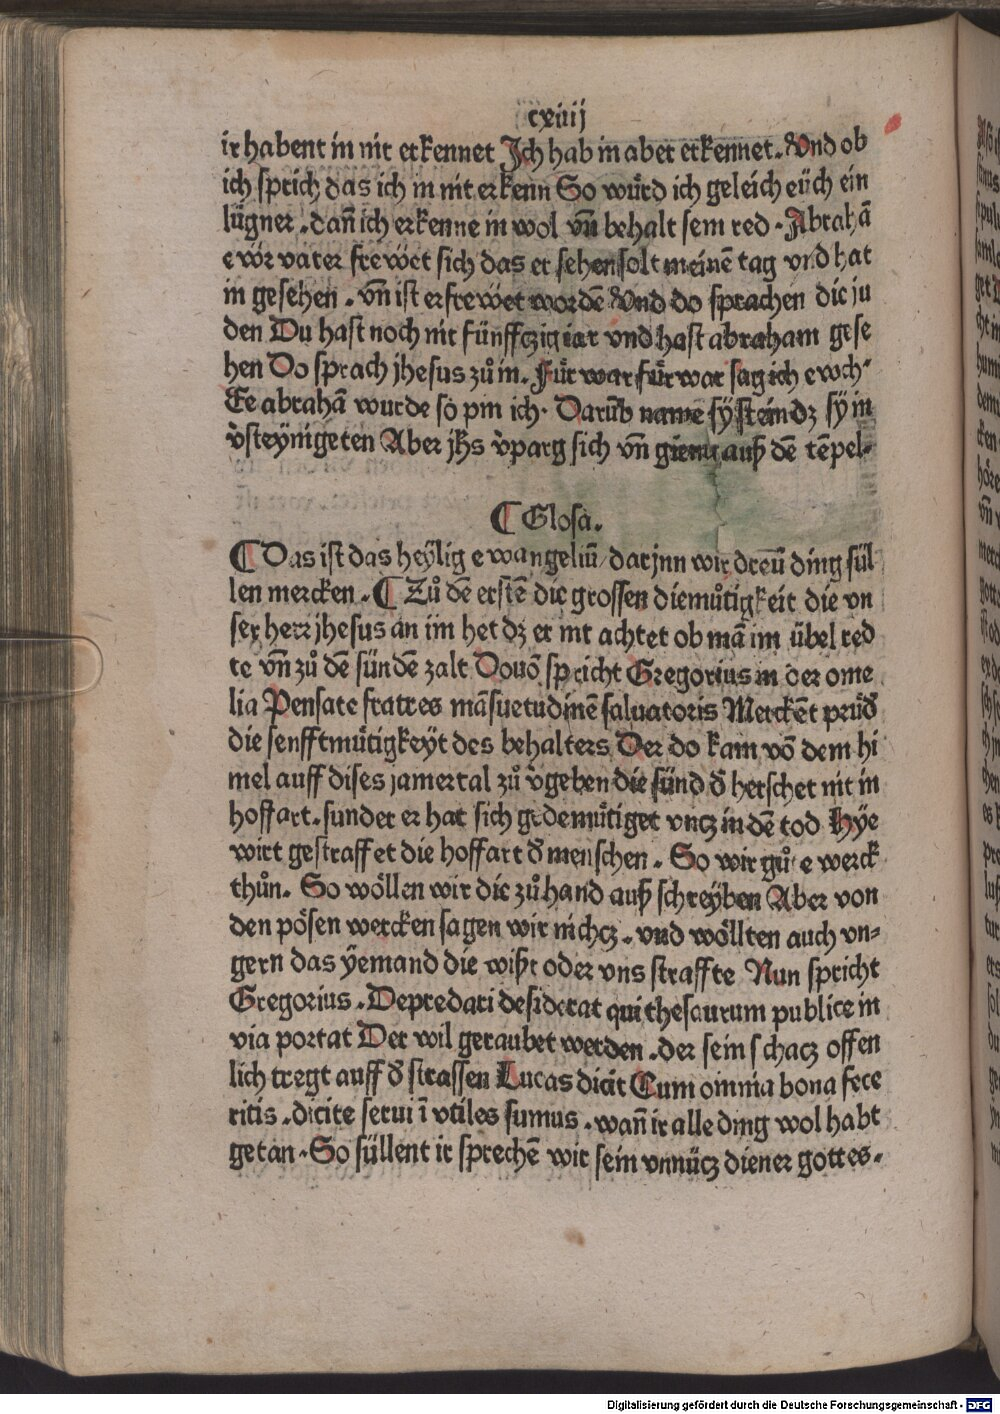 cxiiij
ir habent in nit erkennet Jch hab in aber erkennet. Vnd ob
ich sprich das ich in nit erkenn So wuͤrd ich geleich eüch ein
lügner. dañ ich erkenne in wol vñ behalt sein red. Abrahā
ewͦr vater frewet sich das er sehen solt meinē tag vnd hat
in gesehen. vñ ist erfrewet wordē Vnd do sprachen die ju
den Du hast noch nit fünffczig iar vnd hast abraham gese
hen Do sprach jhesus zů in. Fuͤr war fuͤr war sag ich ewch
Ee abrahā wurde so pin ich. Darūb namē sy stein dz sy in
v̓steynigeten Aber jhs v̓parg sich vñ gieng auß dē tēpel.
¶ Glosa.
¶ Das ist das heÿlig ewangeliū / dar jnn wir dreü ding süll
len mercken. ¶ Zů dē erstē die grossen diemuͤtigkeit die vn
ser herr jhesus an im het dz er nit achtet ob mā im übel red
te vñ zů dē sündē zalt Douō spricht Gregorius in der ome
lia Pensate fratres māsuetudinē saluatoris Merckēt pruͤd̓
die senfftmuͤtigkeyt des behalters Der do kam vō dem hi
mel auff dises jamertal zů v̓geben die sünd d̓ herschet nit in
hoffart. sunder er hat sich gedemuͤtiget vncz in dē tod Hÿe
wirt gestraffet die hoffart d̓ menschen. So wir gůte werck
thůn. So woͤllen wir die zů hand auß schreÿben Aber von
den poͤsen wercken sagen wir nichcz. vnd woͤllten auch vn=
gern das ÿemand die wißt oder vns straffte Nun spricht
Gregorius. Depredari desiderat qui thesaurum publice in
via portat Der wil geraubet werden. der sein schacz offen
lich tregt auff d̓ strassen Lucas dicit Cum omnia bona fece
ritis. dicite serui ī vtiles sumus. wañ ir alle ding wol habt
getan. So süllent ir sprechē wir sein vnnücz diener gottes.
Digitalisierung gefördert durch die Deutsche Forschungsgemeinschaft - DFG